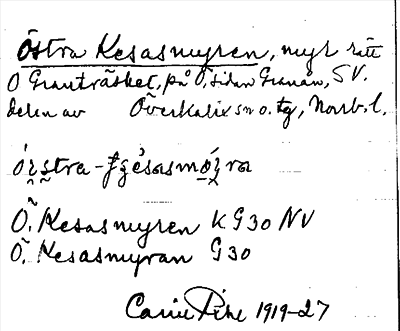 Östra Kesasmyren, myr rätt
O Granträsket, på Ö. sidan Granån, SV.
delen av Överkalix sn o. tg, Norrb. l.
Ö. Kesasmyren K G30 NV
Ö. Kesasmyran G30
Carin Pihl 1919-27